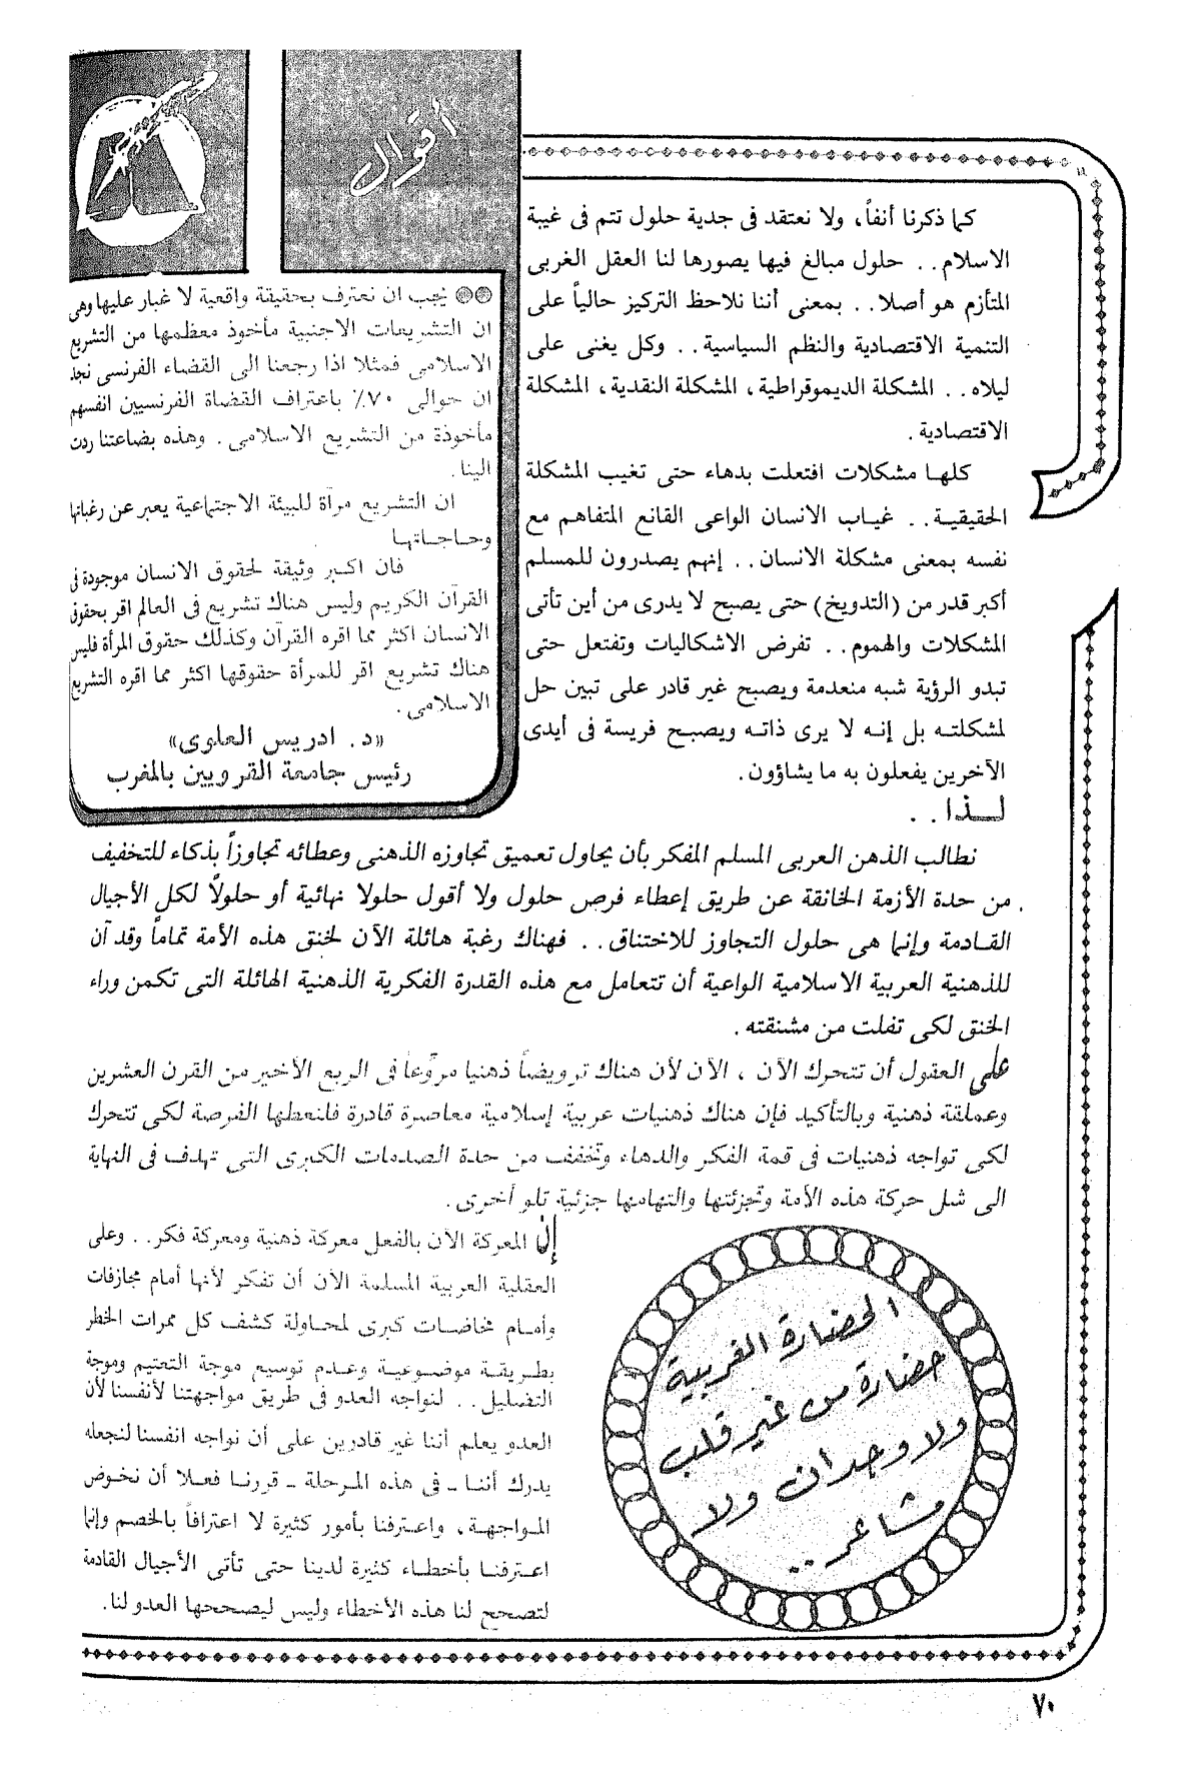 كما ذكرنا أنفاً، ولا نعتقد فى جدية حلول تتم فى غيبة
الاسلام.. حلول مبالغ فيها يصورها لنا العقل الغربى
المتأزم هو أصلا.. بمعنى أننا نلاحظ التركيز حالياً على
التنمية الاقتصادية والنظم السياسية.. وكل يغنى على
ليلاه.. المشكلة الديموقراطية، المشكلة النقدية، المشكلة
الاقتصادية.
كلها مشكلات افتعلت بدهاء حتى تغيب المشكلة
الحقيقية.. غياب الانسان الواعى القانع المتفاهم مع
نفسه بمعنى مشكلة الانسان.. إنهم يصدرون للمسلم
أكبر قدر من (التدويخ) حتى يصبح لا يدرى من أين تأتى
المشكلات والهموم.. تفرض الاشكاليات وتفتعل حتى
تبدو الرؤية شبه منعدمة ويصبح غير قادر على تبين حل
لمشكلته بل إنه لا يرى ذاته ويصبح فريسة فى أيدى
الآخرين يفعلون به ما يشاؤون.
أقوال
يجب ان نعترف بحقيقة واقعية لا غبار عليها وهى
ان التشريعات الاجنبية مأخوذ معظمها من التشريع
الاسلامى فمثلا اذا رجعنا الى القضاء الفرنسى نجد
ان حوالى ٧٠٪ باعتراف القضاة الفرنسيين انفسهم
مأخوذة من التشريع الاسلامى. وهذه بضاعتنا ردت
الينا.
ان التشريع مرآة للبيئة الاجتماعية يعبر عن رغباتها
وحاجاتها
فان اكبر وثيقة لحقوق الانسان موجودة فى
القرآن الكريم وليس هناك تشريع فى العالم اقر بحقوق
الانسان اكثر مما اقره القرآن وكذلك حقوق المرأة فليس
هناك تشريع اقر للمرأة حقوقها اكثر مما اقره التشريع
الاسلامى.
«د. ادريس العلوى»
رئيس جامعة القرويين بالمغرب
لـذا..
نطالب الذهن العربى المسلم المفكر بأن يحاول تعميق تجاوزه الذهنى وعطائه تجاوزاً بذكاء للتخفيف
من حدة الأزمة الخانقة عن طريق إعطاء فرص حلول ولا أقول حلولا نهائية أو حلولاً لكل الأجيال
القادمة وإنما هى حلول التجاوز للاختناق.. فهناك رغبة هائلة الآن لخنق هذه الأمة تماماً وقد آن
للذهنية العربية الاسلامية الواعية أن تتعامل مع هذه القدرة الفكرية الذهنية الهائلة التى تكمن وراء
الخنق لكى تفلت من مشنقته.
على العقول أن تتحرك الآن، الآن لأن هناك ترويضاً ذهنيا مروّعاً فى الربع الأخير من القرن العشرين
وعملقة ذهنية وبالتأكيد فإن هناك ذهنيات عربية إسلامية معاصرة قادرة فلنعطها الفرصة لكى تتحرك
لكى تواجه ذهنيات فى قمة الفكر والدهاء وتخفف من حدة الصدمات الكبرى التى تهدف فى النهاية
الى شل حركة هذه الأمة وتجزئتها والتهامها جزئية تلو أخرى.
إنّ المعركة الآن بالفعل معركة ذهنية ومعركة فكر.. وعلى
العقلية العربية المسلمة الآن أن تفكر لأنها أمام مجازفات
وأمام مخاضات كبرى لمحاولة كشف كل ممرات الخطر
بطريقة موضوعية وعدم توسيع موجة التعتيم وموجة
التضليل.. لنواجه العدو فى طريق مواجهتنا لأنفسنا لأن
العدو يعلم أننا غير قادرين على أن نواجه انفسنا لنجعله
يدرك أننا - فى هذه المرحلة - قررنا فعلا أن نخوض
المواجهة، واعترفنا بأمور كثيرة لا اعترافاً بالخصم وإنما
اعترفنا بأخطاء كثيرة لدينا حتى تأتى الأجيال القادمة
لتصحح لنا هذه الأخطاء وليس ليصححها العدو لنا.
الحضارة الغربية
حضارة من غير قلب
ولا وجدان ولا
مشاعر..
٧٠